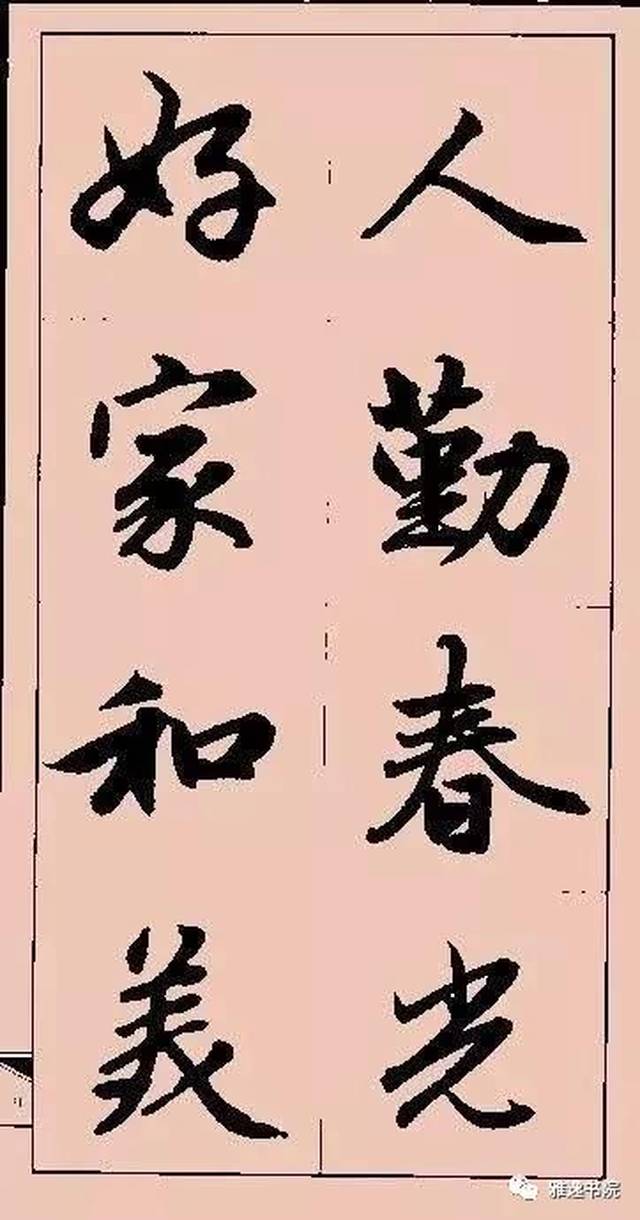 人勤春光
好家和美
雅逸书院